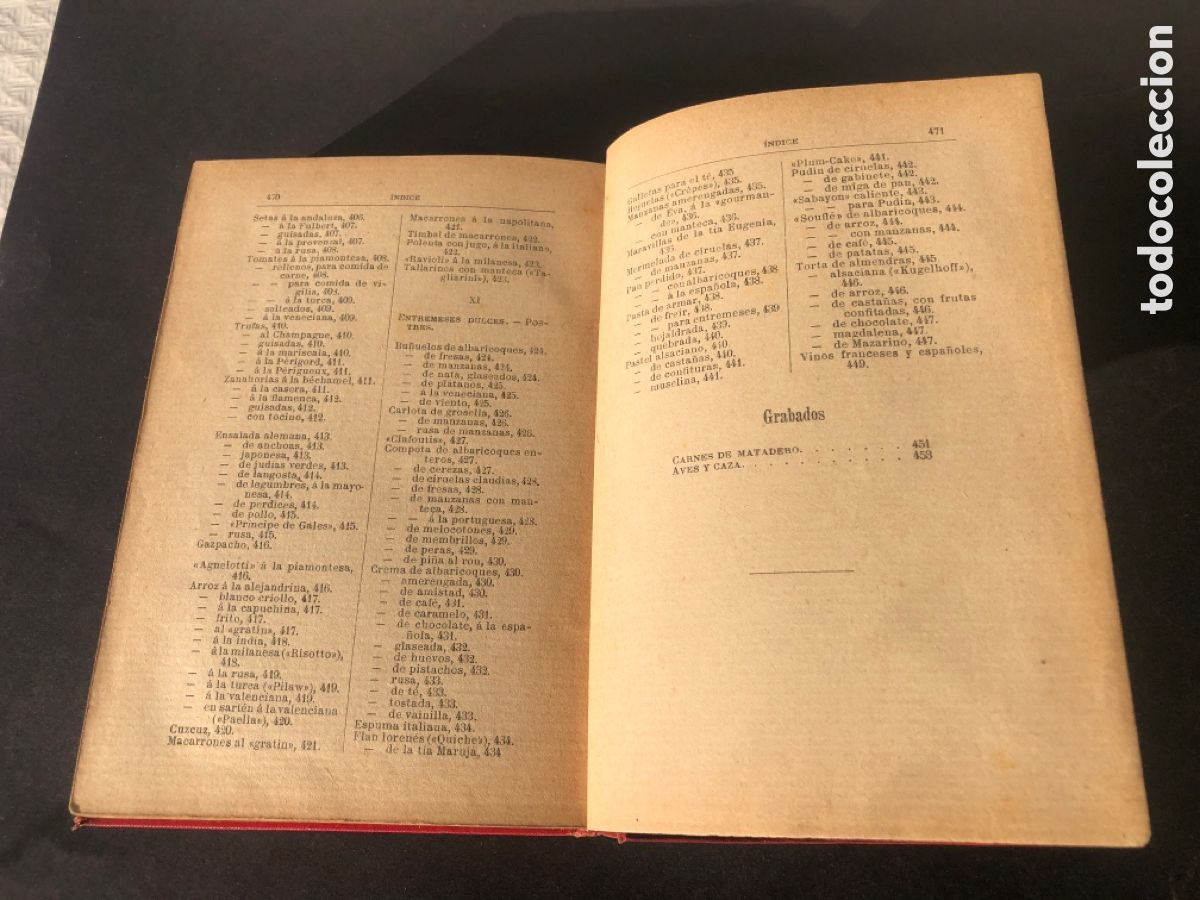 470 ÍNDICE
Setas á la andaluza, 406.
— á la Fulbert, 407.
— guisadas, 407.
— á la provenzal, 407.
— á la rusa, 408.
Tomates á la piamontesa, 408.
— rellenos, para comida de
carne, 408.
— — para comida de vi-
gilia, 408.
— — á la turca, 409.
— salteados, 409.
— á la veneciana, 409.
Trufas, 410.
— al Champagne, 410.
— guisadas, 410.
— á la mariscala, 410.
— á la Périgord, 411.
— á la Périgueux, 411.
Zanahorias á la béchamel, 411.
— á la casera, 411.
— á la flamenca, 412.
— guisadas, 412.
— con tocino, 412.
Ensalada alemana, 413.
— de anchoas, 413.
— japonesa, 413.
— de judías verdes, 413.
— de langosta, 414.
— de legumbres, á la mayo-
nesa, 414.
— de perdices, 414.
— de pollo, 415.
— «Príncipe de Gales», 415.
— rusa, 415.
Gazpacho, 416.
«Agnelotti» á la piamontesa,
416.
Arroz á la alejandrina, 416.
— blanco criollo, 417.
— á la capuchina, 417.
— frito, 417.
— al «gratin», 417.
— á la india, 418.
— á la milanesa («Risotto»),
418.
— á la rusa, 419.
— á la turca («Pilaw»), 419.
— á la valenciana, 419.
— en sartén á la valenciana
(«Paella»), 420.
Cuzcuz, 420.
Macarrones al «gratin», 421.
Macarrones á la napolitana,
421.
Timbal de macarrones, 422.
Polenta con jugo, á la italiana,
422.
«Ravioli» á la milanesa, 423.
Tallarines con manteca («Ta-
gliarini»), 423.
XI
ENTREMESES DULCES. — POS-
TRES.
Buñuelos de albaricoques, 424.
— de fresas, 424.
— de manzanas, 424.
— de nata, glaseados, 424.
— de plátanos, 425.
— á la veneciana, 425.
— de viento, 425.
Carlota de grosella, 426.
— de manzanas, 426.
— rusa de manzanas, 426.
«Clafoutis», 427.
Compota de albaricoques en-
teros, 427.
— de cerezas, 427.
— de ciruelas claudias, 428.
— de fresas, 428.
— de manzanas con man-
teca, 428.
— — á la portuguesa, 428.
— de melocotones, 429.
— de membrillos, 429.
— de peras, 429.
— de piña al ron, 430.
Crema de albaricoques, 430.
— amerengada, 430.
— de amistad, 430.
— de café, 431.
— de caramelo, 431.
— de chocolate, á la espa-
ñola, 431.
— glaseada, 432.
— de huevos, 432.
— de pistachos, 432.
— rusa, 433.
— de té, 433.
— tostada, 433.
— de vainilla, 433.
Espuma italiana, 434.
Flan lorenés («Quiche»), 434.
— de la tía Maruja, 434
ÍNDICE 471
Galletas para el té, 435
Hojuelas («Crêpes»), 435.
Manzanas amerengadas, 435.
— de Eva, á la «gourman-
de», 436.
— con manteca, 436.
Maravillas de la tía Eugenia,
436.
Mermelada de ciruelas, 437.
— de manzanas, 437.
Pan perdido, 437.
— — con albaricoques, 438
— — á la española, 438.
Pasta de armar, 438.
— de freir, 438.
— — para entremeses, 439
— hojaldrada, 439.
— quebrada, 440.
Pastel alsaciano, 440.
— de castañas, 440.
— de confituras, 441.
— muselina, 441.
«Plum-Cake», 441.
Pudín de ciruelas, 442.
— de gabinete, 442.
— de miga de pan, 442.
«Sabayon» caliente, 442.
— — para Pudín, 443.
«Souflé» de albaricoques, 444.
— de arroz, 444.
— — con manzanas, 444.
— de café, 445.
— de patatas, 445.
Torta de almendras, 445
— alsaciana («Kugelhoff»),
446.
— de arroz, 446.
— de castañas, con frutas
confitadas, 446.
— de chocolate, 447.
— magdalena, 447.
— de Mazarino, 447.
Vinos franceses y españoles,
449.
Grabados
CARNES DE MATADERO. . . . . . . . 451
AVES Y CAZA. . . . . . . . . . 453
todocoleccion